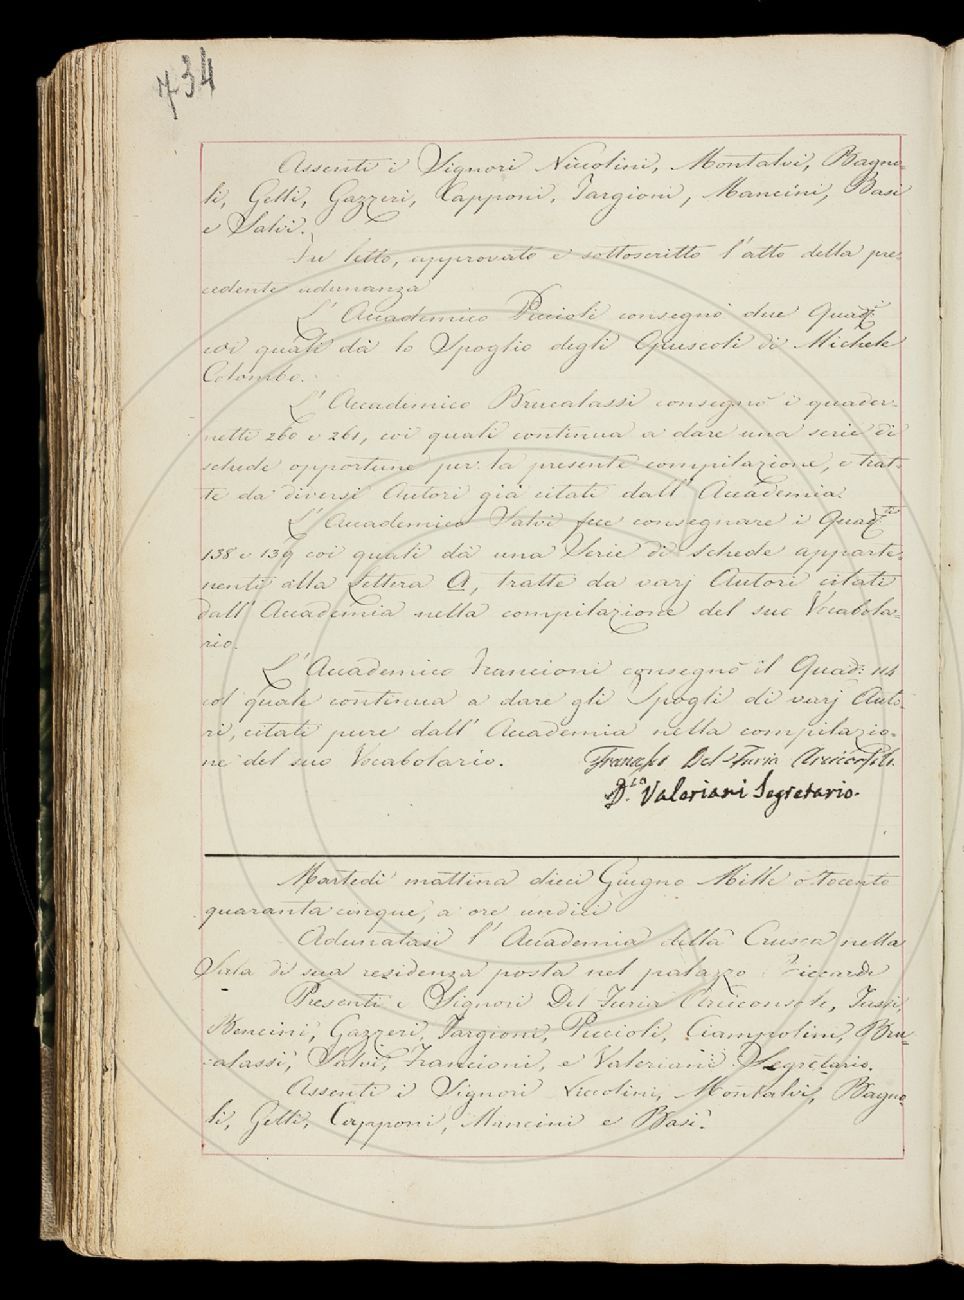 734
Assenti i Signori Niccolini, Montalvi, Bagno-
li, Gelli, Gazzeri, Capponi, Targioni, Mancini, Basi
e Salvi.
Fu letto, approvato e sottoscritto l'atto della pre-
cedente adunanza
L'Accademico Piccioli consegnò due Quad.ti
coi quali dà lo Spoglio degli Opuscoli di Michele
Colombo.
L'Accademico Brucalassi consegnò i quader-
netti 260 e 261, coi quali continua a dare una serie di
schede opportune per la presente compilazione, e trat-
te da diversi Autori già citati dall'Accademia.
L'Accademico Salvi fece consegnare i Quad.ti
138 e 139 coi quali dà una Serie di schede apparte-
nenti alla Lettera A, tratte da varj Autori citati
dall'Accademia nella compilazione del suo Vocabola-
rio.
L'Accademico Francioni consegnò il Quad: 114
col quale continua a dare gli Spogli di varj Auto-
ri, citati pure dall'Accademia nella compilazio-
ne del suo Vocabolario. Francesco Del Furia Arciconsolo.
D.co Valeriani Segretario.
Martedì mattina dieci Giugno Mille ottocento
quaranta cinque, a ore undici
Adunatasi l'Accademia della Crusca nella
Sala di sua residenza posta nel palazzo Riccardi
Presenti i Signori Del Furia Arciconsolo, Fussi,
Bencini, Gazzeri, Targioni, Piccioli, Ciampolini, Bru-
calassi, Salvi, Francioni, e Valeriani Segretario.
Assenti i Signori Niccolini, Montalvi, Bagno-
li, Gelli, Capponi, Mancini e Basi.